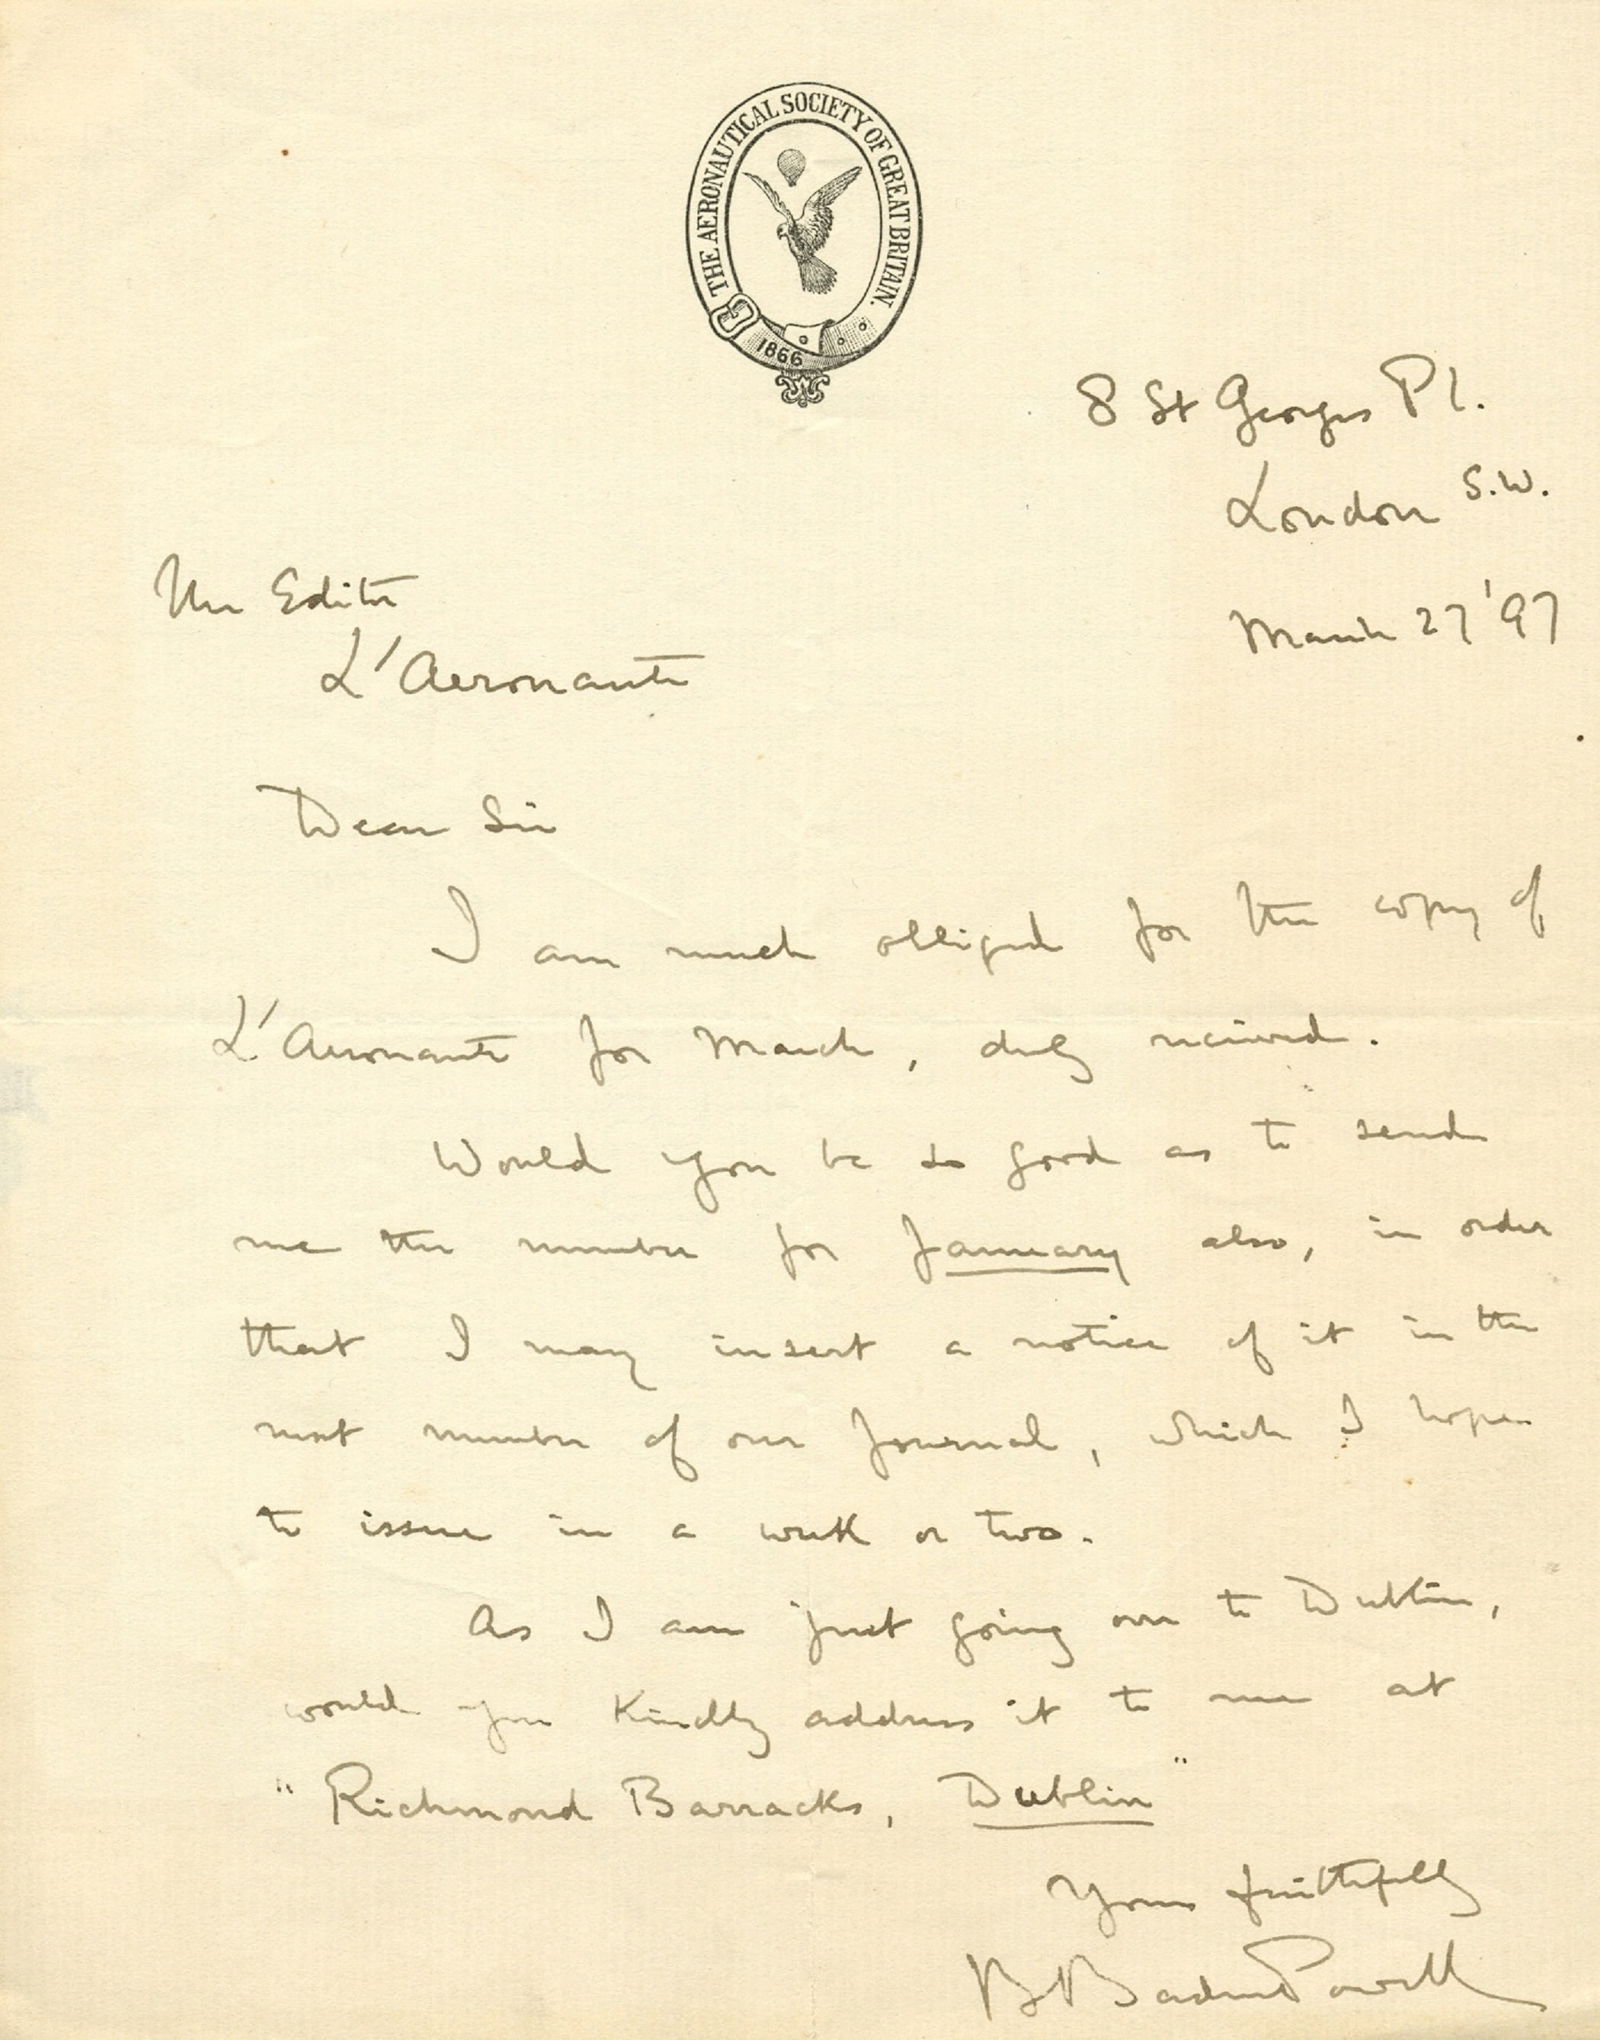 THE AERONAUTICAL SOCIETY OF GREAT BRITAIN.
1866
8 St Georges Pl.
London S.W.
March 27 '97
The Editor
L'Aeronaute
Dear Sir
I am much obliged for the copy of
L'Aeronaute for March, duly received.
Would you be so good as to send
me the number for January also, in order
that I may insert a notice of it in the
next number of our Journal, which I hope
to issue in a week or two.
As I am just going over to Dublin,
would you kindly address it to me at
"Richmond Barracks, Dublin"
Yours faithfully
B Baden Powell